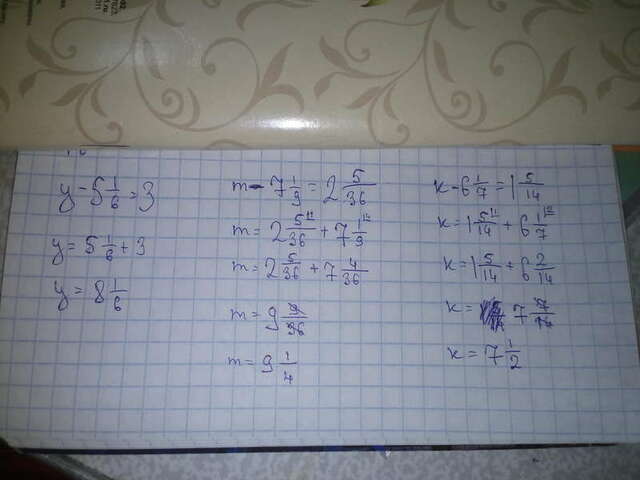 y - 5 1/6 = 3
y = 5 1/6 + 3
y = 8 1/6
m - 7 1/9 = 2 5/36
m = 2 5/36 + 7 1/9
m = 2 5/36 + 7 4/36
m = 9 9/36
m = 9 1/4
к - 6 1/7 = 1 5/14
к = 1 5/14 + 6 1/7
к = 1 5/14 + 6 2/14
к = 7 7/14
к = 7 1/2